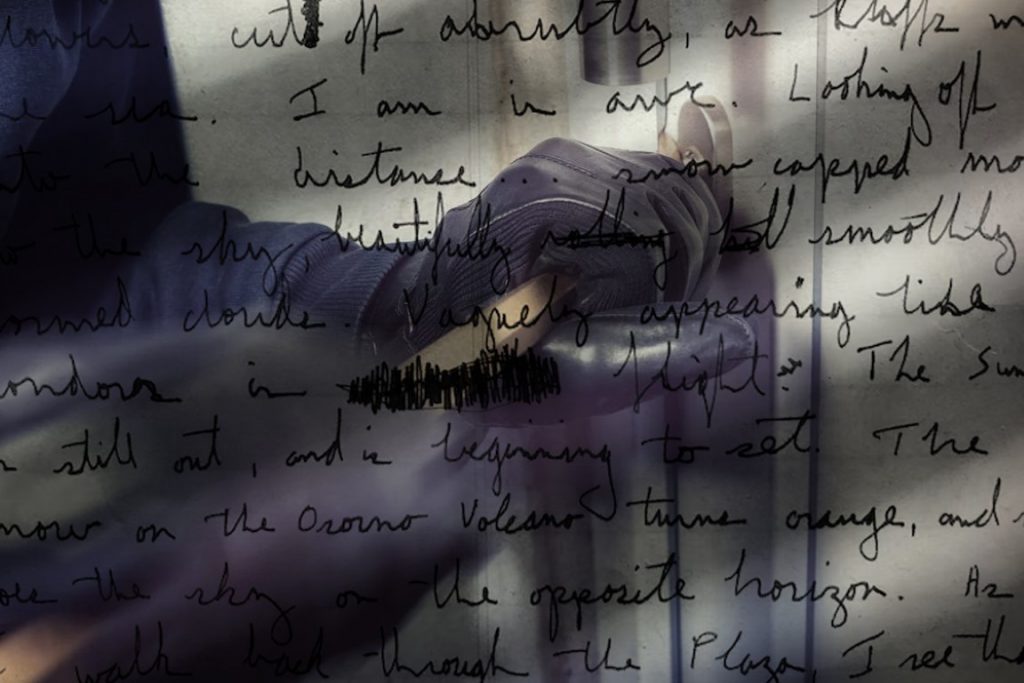 cut off abruptly, as
sea. I am in awe. Looking off
the distance... snow capped
the sky, beautifully smoothly
clouds. Vaguely appearing like
in flight. The Sun
still out, and is beginning to set. The
on the Osorno Volcano turns orange, and
the sky on the opposite horizon. As
walk back through the Plaza, I see